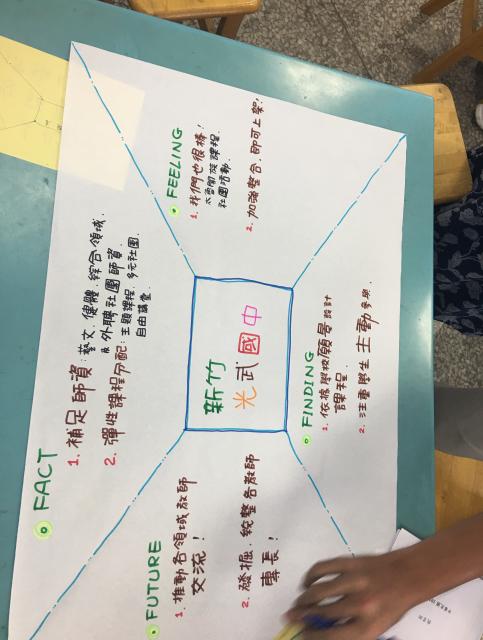 新竹
光武國中
FACT
1. 補足師資: 藝文、健體、綜合領域、
及外聘社團師資.
2. 彈性課程分配: 主題課程、多元社團、
自由講堂.
FEELING
1. 我們也很棒!
社團活動.
2. 加強整合, 即可上架!
FINDING
1. 依據學校願景設計
課程.
2. 注重學生主動參與.
FUTURE
1. 推動各領域教師
交流!
2. 發掘、統整各教師
專長!